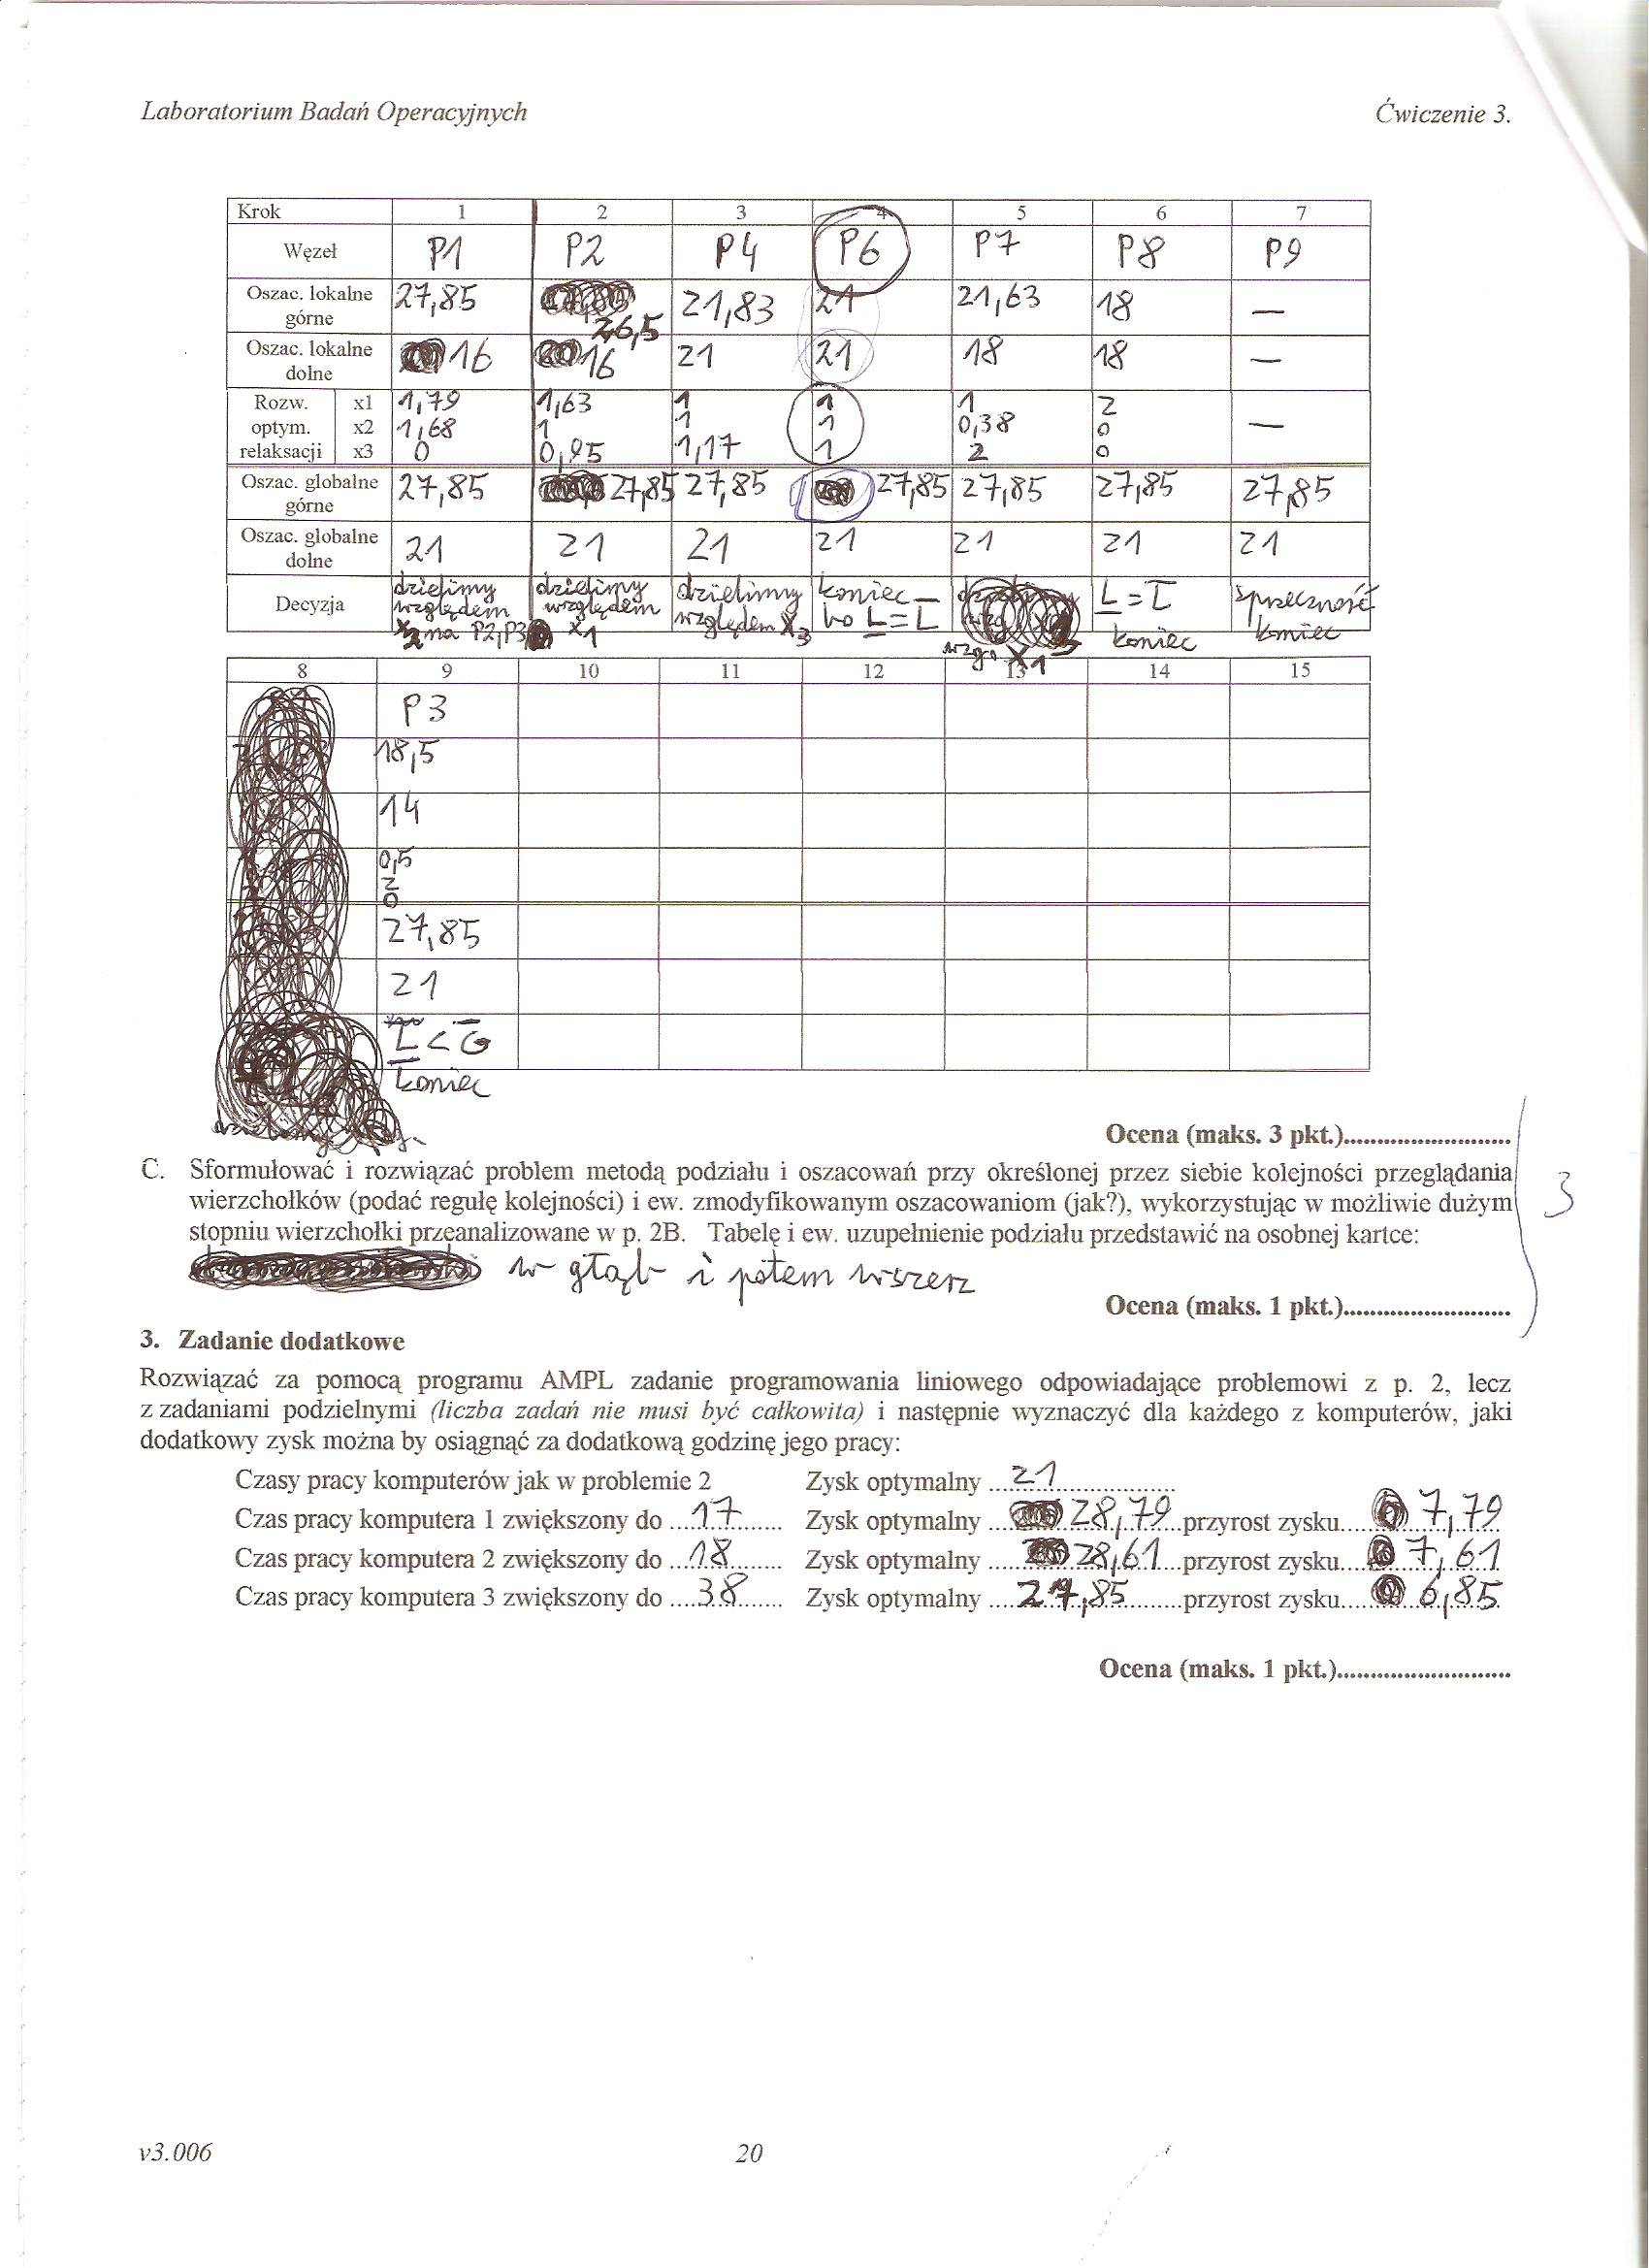 Laboratorium Badań Operacyjnych Ćwiczenie 3.
Krok 1 2 3 4 5 6 7
Węzeł P1 P2 P4 P6 P7 P8 P9
Oszac. lokalne górne 27,85 26,5 21,83 21 21,63 18 —
Oszac. lokalne dolne 16 16 21 21 18 18 —
Rozw. x1 1,79 1,63 1 1 1 2
optym. x2 1,68 1 1 1 0,38 0 —
relaksacji x3 0 0,95 1,17 1 2 0
Oszac. globalne górne 27,85 27,85 27,85 27,85 27,85 27,85 27,85
Oszac. globalne dolne 21 21 21 21 21 21 21
Decyzja dzielimy względem x2 na P2,P3 dzielimy względem x1 dzielimy względem x3 koniec bo L = L wzg. x1 L = L koniec sprzeczność koniec
8 9 10 11 12 13 14 15
P3
18,5
14
0,5
2
0
27,85
21
L < G
koniec
Ocena (maks. 3 pkt.)..........................
C. Sformułować i rozwiązać problem metodą podziału i oszacowań przy określonej przez siebie kolejności przeglądania
wierzchołków (podać regułę kolejności) i ew. zmodyfikowanym oszacowaniom (jak?), wykorzystując w możliwie dużym
stopniu wierzchołki przeanalizowane w p. 2B. Tabelę i ew. uzupełnienie podziału przedstawić na osobnej kartce:
3
w głąb i potem wszerz
Ocena (maks. 1 pkt.)..........................
3. Zadanie dodatkowe
Rozwiązać za pomocą programu AMPL zadanie programowania liniowego odpowiadające problemowi z p. 2, lecz
z zadaniami podzielnymi (liczba zadań nie musi być całkowita) i następnie wyznaczyć dla każdego z komputerów, jaki
dodatkowy zysk można by osiągnąć za dodatkową godzinę jego pracy:
Czasy pracy komputerów jak w problemie 2 Zysk optymalny ...21...
Czas pracy komputera 1 zwiększony do ....17....... Zysk optymalny ....28,79...przyrost zysku.....7,79
Czas pracy komputera 2 zwiększony do ....18....... Zysk optymalny ....28,61...przyrost zysku.....7,61
Czas pracy komputera 3 zwiększony do ....38....... Zysk optymalny ....27,85...przyrost zysku.....6,85
Ocena (maks. 1 pkt.)..........................
v3.006 20